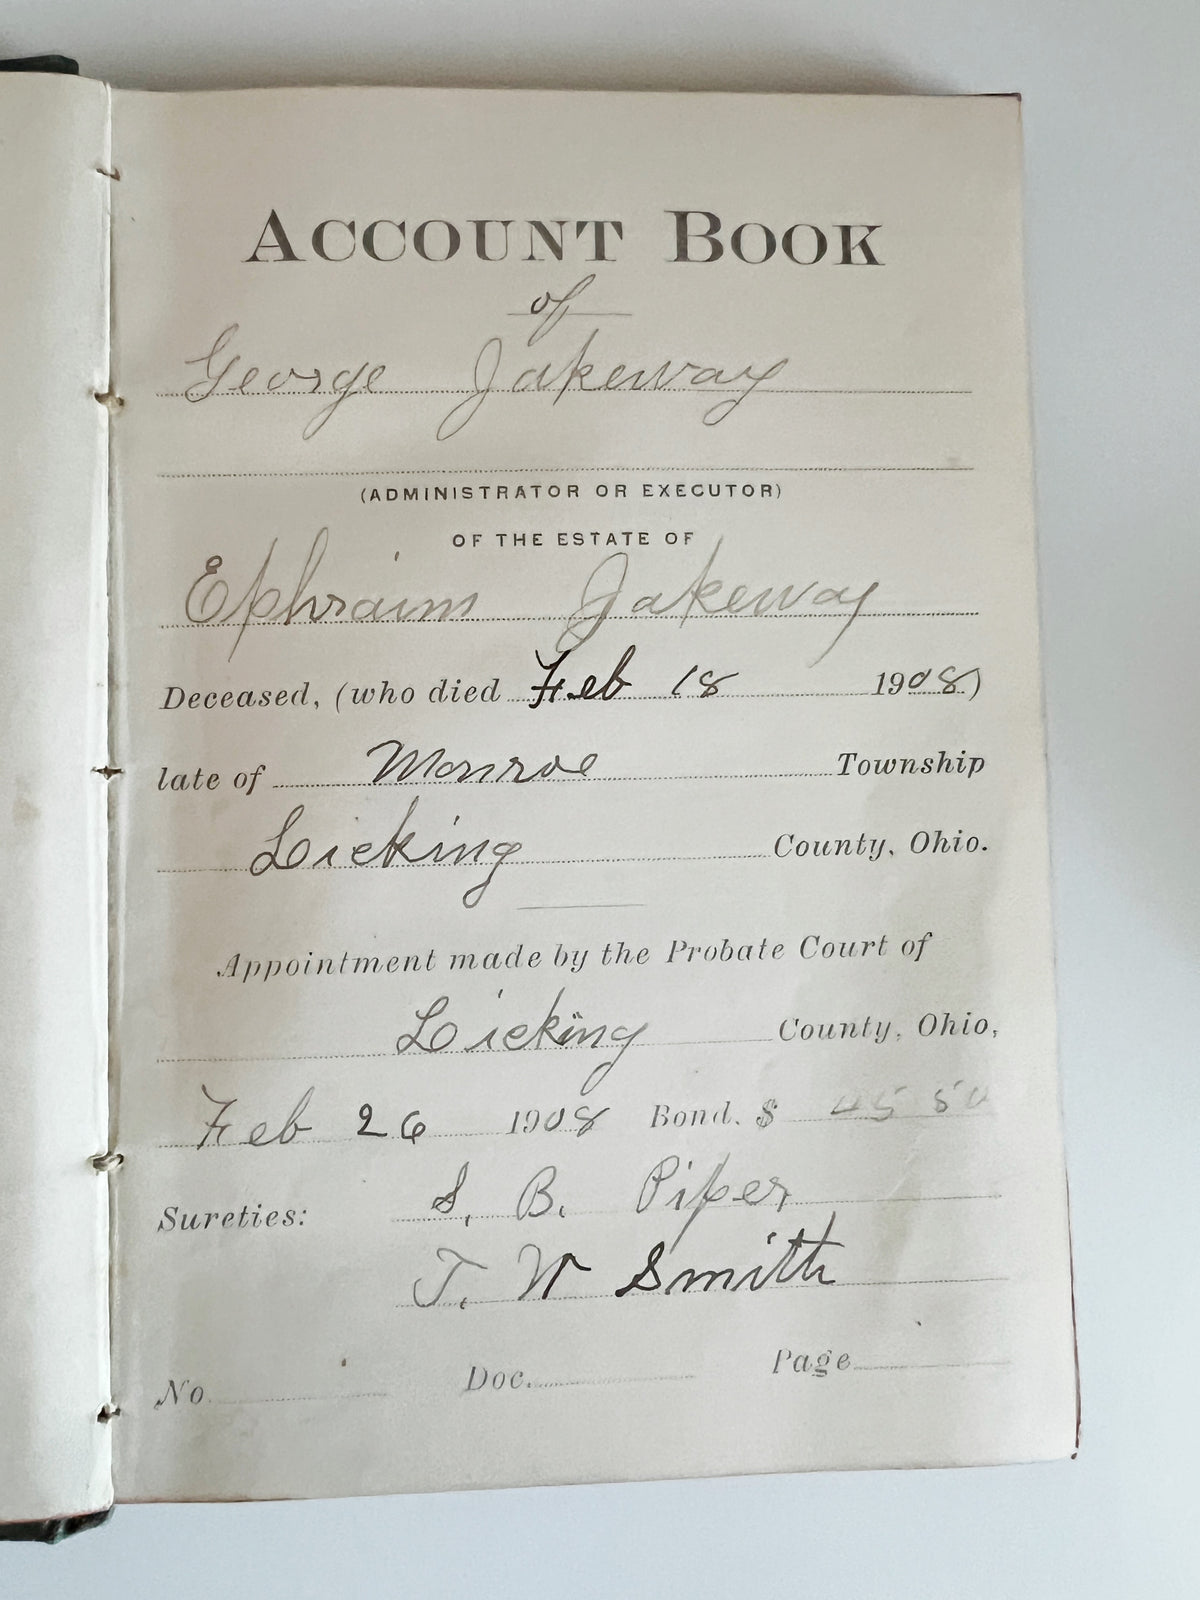 ACCOUNT BOOK
of
George Jakeway
(ADMINISTRATOR OR EXECUTOR)
OF THE ESTATE OF
Ephraim Jakeway
Deceased, (who died Feb 18 1908)
late of Monroe Township
Licking County, Ohio.
Appointment made by the Probate Court of
Licking County, Ohio,
Feb 26 1908 Bond. $
Sureties: S. B. Piper
T. W Smith
No. Doc. Page